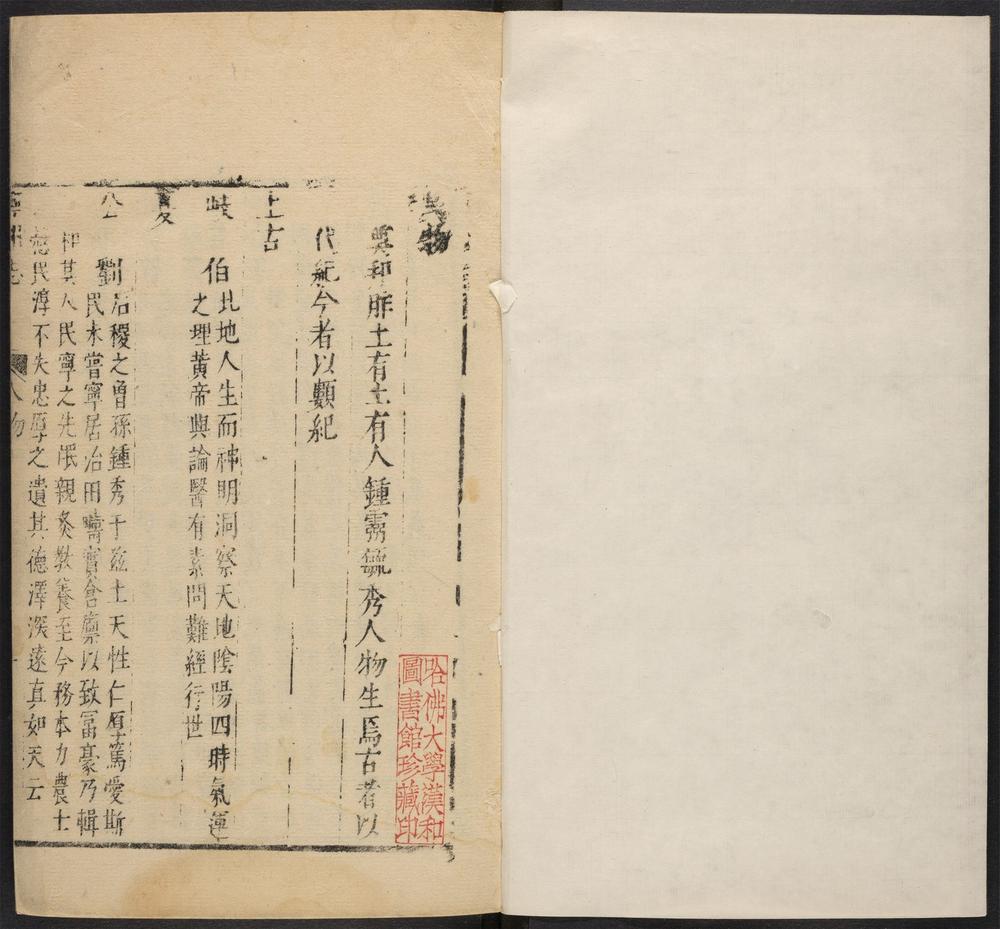 物
胙土有土有人鍾靈毓秀人物生焉古者以
代紀今者以類紀
上古
岐伯北地人生而神明洞察天地陰陽四時氣運
之理黃帝與論醫有素問難經行世
夏
公劉后稷之曾孫鍾秀于茲土天性仁厚篤愛斯
民未嘗寧居治田疇實倉廩以致富豪乃輯
其人民寧之先氓親炙教養至今務本力農士
民淳不失忠厚之遺其德澤深遠真如天云
人物
哈佛大學漢和
圖書館珍藏印